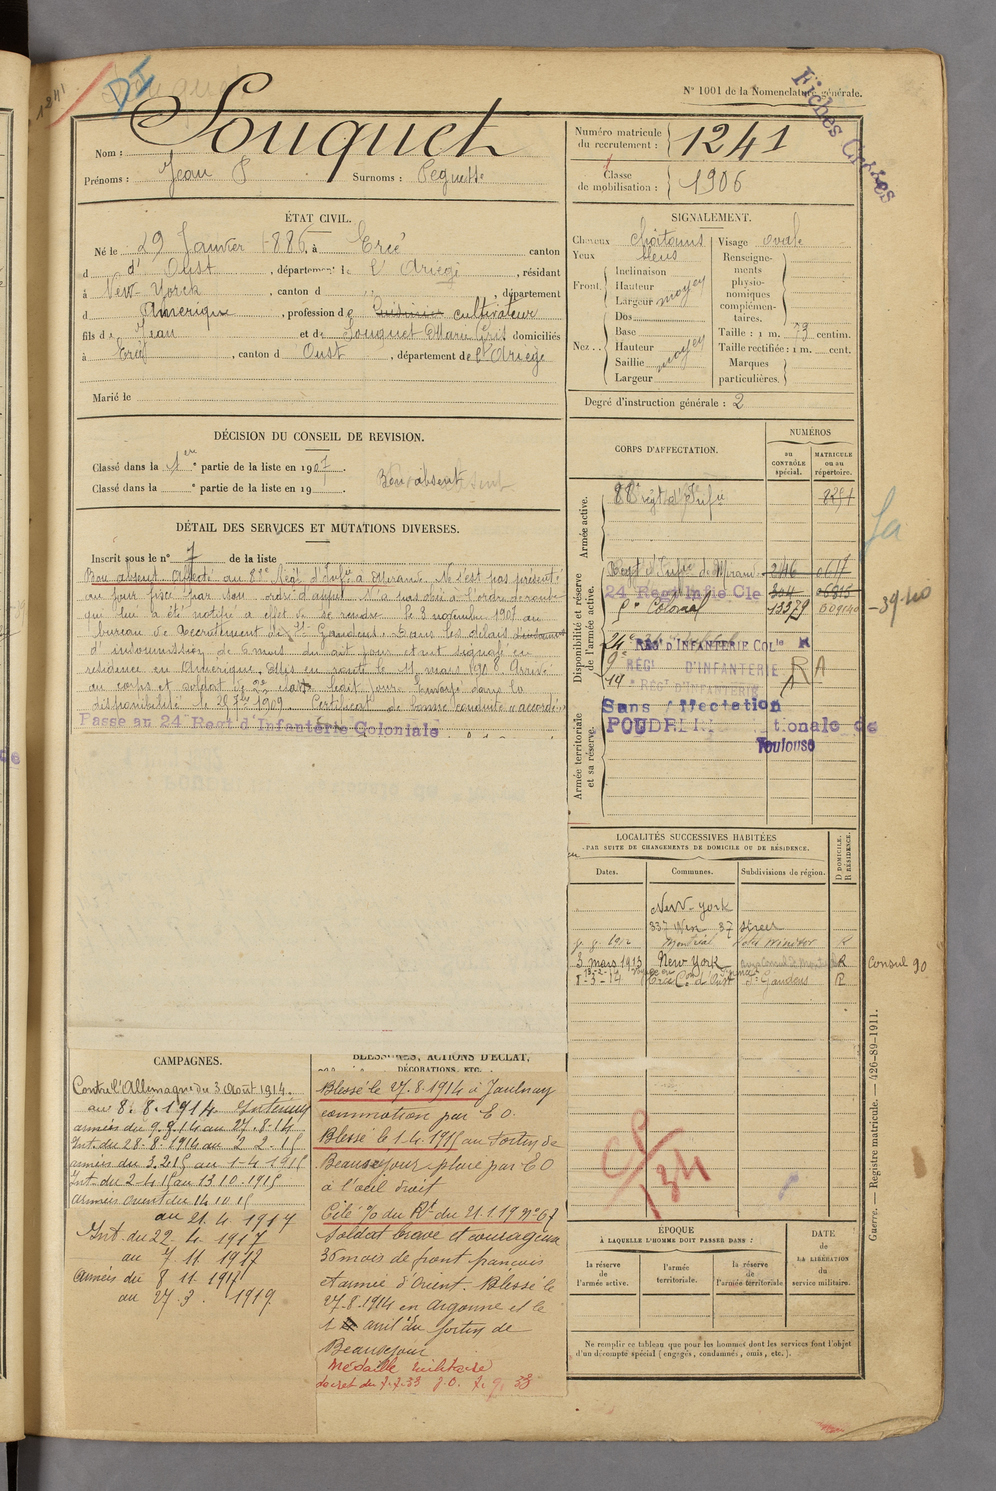 1241
N° 1001 de la Nomenclature générale.
Fiches Croisées
Nom : Souquet
Prénoms : Jean P Surnoms : Peguette
Numéro matricule du recrutement : 1241
Classe de mobilisation : 1906
ÉTAT CIVIL.
Né le 29 Janvier 1886, à Ercé canton
d d'Oust, département de l'Ariège, résidant
à New-Yorck, canton d " , département
d Amérique, profession de Cuisinier cultivateur
fils de Jean et de Souquet Marie domiciliés
à Ercé, canton d Oust, département de l'Ariège
Marié le
SIGNALEMENT.
Cheveux châtains
Yeux bleus
Front. Inclinaison
Hauteur
Largeur moyen
Nez. Dos
Base
Hauteur
Saillie moyen
Largeur
Visage ovale
Renseignements physionomiques complémentaires.
Taille : 1 m. 73 centim.
Taille rectifiée : 1 m. cent.
Marques particulières.
Degré d'instruction générale : 2
DÉCISION DU CONSEIL DE REVISION.
Classé dans la 1ere partie de la liste en 1907.
Classé dans la e partie de la liste en 19 .
Bon absent
DÉTAIL DES SERVICES ET MUTATIONS DIVERSES.
Inscrit sous le n° 7 de la liste
Bon absent. Affecté au 88e Régt d'Infie à Mirande. Ne s'est pas présenté
au jour fixé par son ordre d'appel. N'a pas obéi à l'ordre de route
qui lui a été notifié à effet de se rendre le 3 novembre 1907 au
bureau de Recrutement de St Gaudens. Dans les délais
d'insoumission de 6 mois du dit jour étant signalé en
résidence en Amérique. Mis en route le 11 mars 1908. Arrivé
au corps et soldat de 2e classe le dit jour. Envoyé dans la
disponibilité le 25 7bre 1909. Certificat de bonne conduite "accordé"
Passé au 24e Regt d'Infanterie Coloniale
CORPS D'AFFECTATION.
NUMÉROS
au CONTRÔLE spécial.
MATRICULE ou au répertoire.
Armée active.
88e régt d'Infie
Disponibilité et réserve de l'armée active.
Régt d'Infie de Mirande 246 0617
24 Regt Infie Cle 304 06815
5e Colonial 13379
24e REGt D'INFANTERIE COLle
9e REGt D'INFANTERIE RA
14e REGt D'INFANTERIE
Armée territoriale et sa réserve.
Sans Affectation
POUDRERIE Nationale de Toulouse
LOCALITÉS SUCCESSIVES HABITÉES
PAR SUITE DE CHANGEMENTS DE DOMICILE OU DE RÉSIDENCE.
Dates.
Communes.
Subdivisions de région.
D DOMICILE. R RÉSIDENCE.
New-York
337 West 37 Street
1912 Montréal Hotel Windsor R
3 mars 1913 New York R
Consul 90
8-3-14 Ercé Con d'Oust St Gaudens R
CAMPAGNES.
Contre l'Allemagne du 3 Août 1914.
au 8.8.1914 Intérieur
armées du 9.8.14 au 27.8.14
Int. du 28-8-1914 au 2.2.15
armées du 3.2.15 au 1-4 1915
Int. du 2-4-15 au 13.10.1915
Armées Orient du 14.10.15
au 21.4.1917
Int. du 22.4.1917
au 7.11.1917
Armées du 8.11.1917
au 27.3.1919.
BLESSURES, ACTIONS D'ÉCLAT, DÉCORATIONS, ETC.
Blessé le 27.8.1914 à Jaulnay
commotion par E O.
Blessé le 1.4.1915 au Fortin de
Beauséjour plaie par E O
à l'œil droit
Cité % du Rt du 21.1.19 n° 67
Soldat brave et courageux
36 mois de front français
et armée d'Orient. Blessé le
27-8-1914 en Argonne et le
1 avril du fortin de
Beauséjour
Médaille militaire
décret du 7.7.33 J.O. 7.9.33
CP 134
ÉPOQUE
À LAQUELLE L'HOMME DOIT PASSER DANS :
la réserve de l'armée active.
l'armée territoriale.
la réserve de l'armée territoriale
DATE DE LA LIBÉRATION du service militaire.
Ne remplir ce tableau que pour les hommes dont les services font l'objet
d'un décompte spécial (engagés, condamnés, omis, etc.).
Guerre. — Registre matricule. — 426-89-1911.